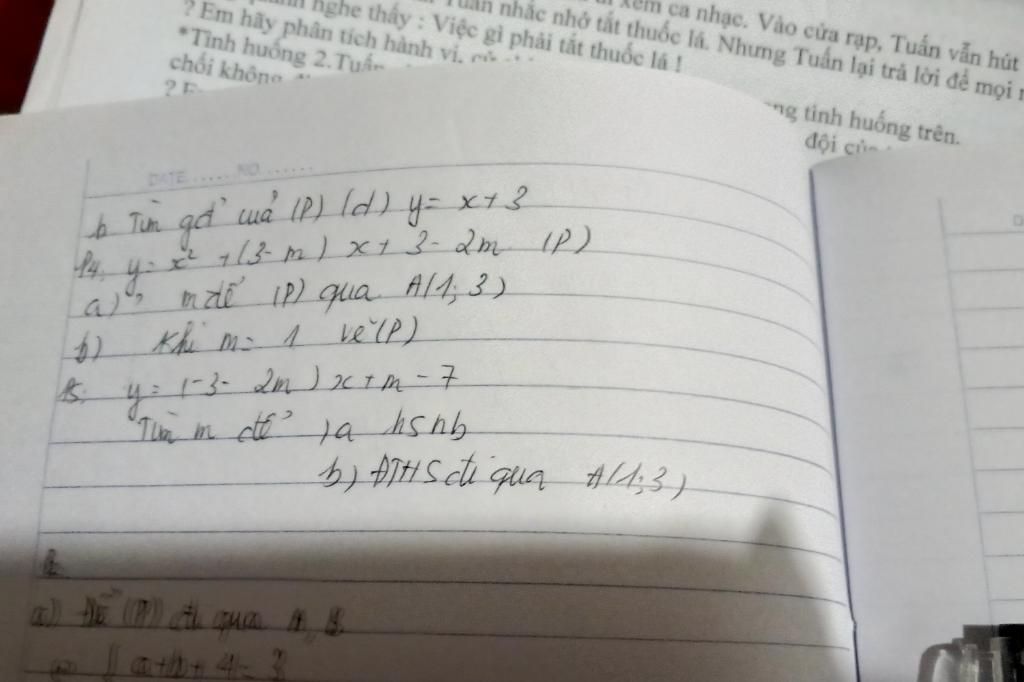 xem ca nhạc. Vào cửa rạp, Tuấn vẫn hút
nghe thấy : Việc gì phải tắt thuốc lá. Nhưng Tuấn lại trả lời để mọi
nhắc nhở tắt thuốc lá !
? Em hãy phân tích hành vi,
*Tình huống 2. Tuấn
chối không
ng tình huống trên.
đội của
DATE...... NO......
b Tìm gđ' của (P) (d) y = x + 3
y = x² + (3 - m) x + 3 - 2m (P)
a) ? m để (P) qua A(1; 3)
b) Khi m = 1 vẽ (P)
y = (-3 - 2m) x + m - 7
Tìm m để )a hsnb
b) ĐTHS đi qua A(1; 3)
a) Để (P) đi qua
a + b + 4 = 3